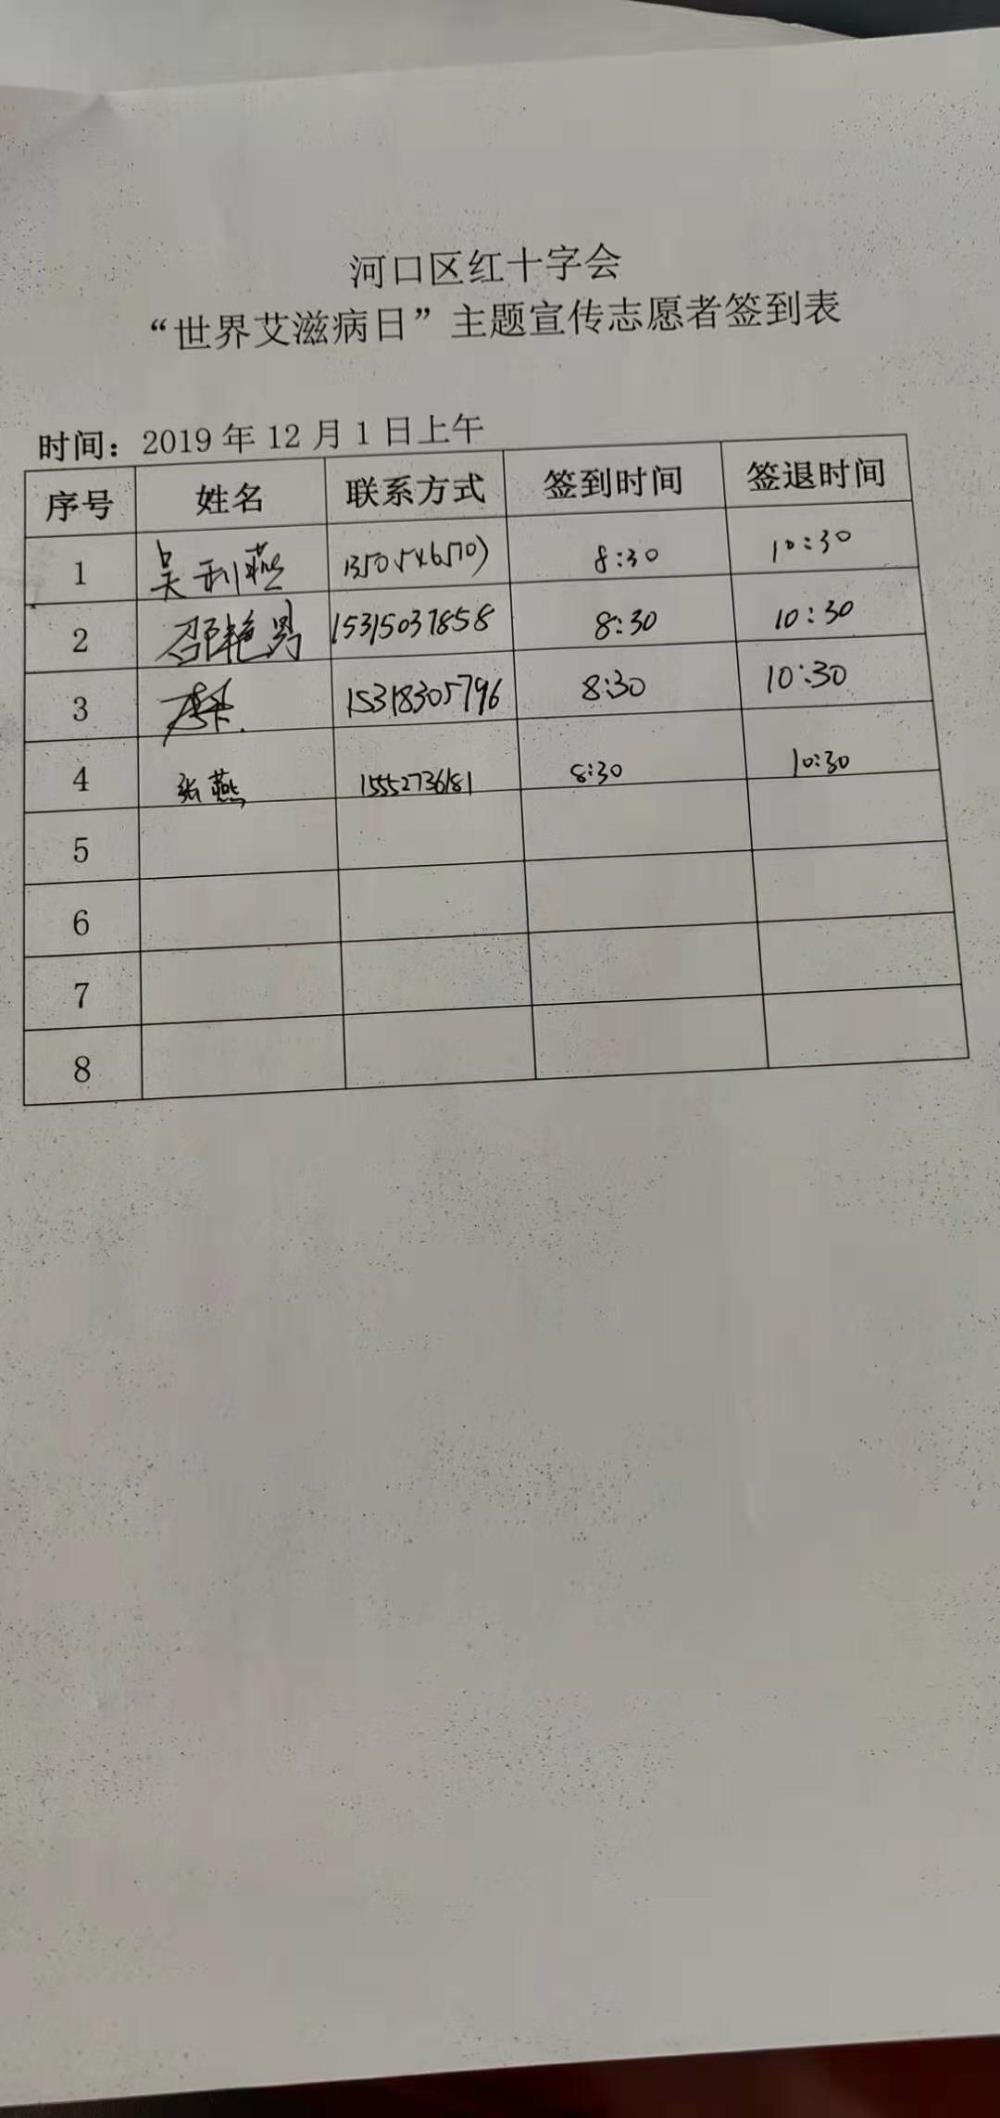 河口区红十字会
“世界艾滋病日”主题宣传志愿者签到表
时间：2019年12月1日上午
序号 姓名 联系方式 签到时间 签退时间
1 吴利燕 8:30 10:30
2 邵艳男 15315037858 8:30 10:30
3 15318305796 8:30 10:30
4 张燕 15552736181 8:30 10:30
5
6
7
8